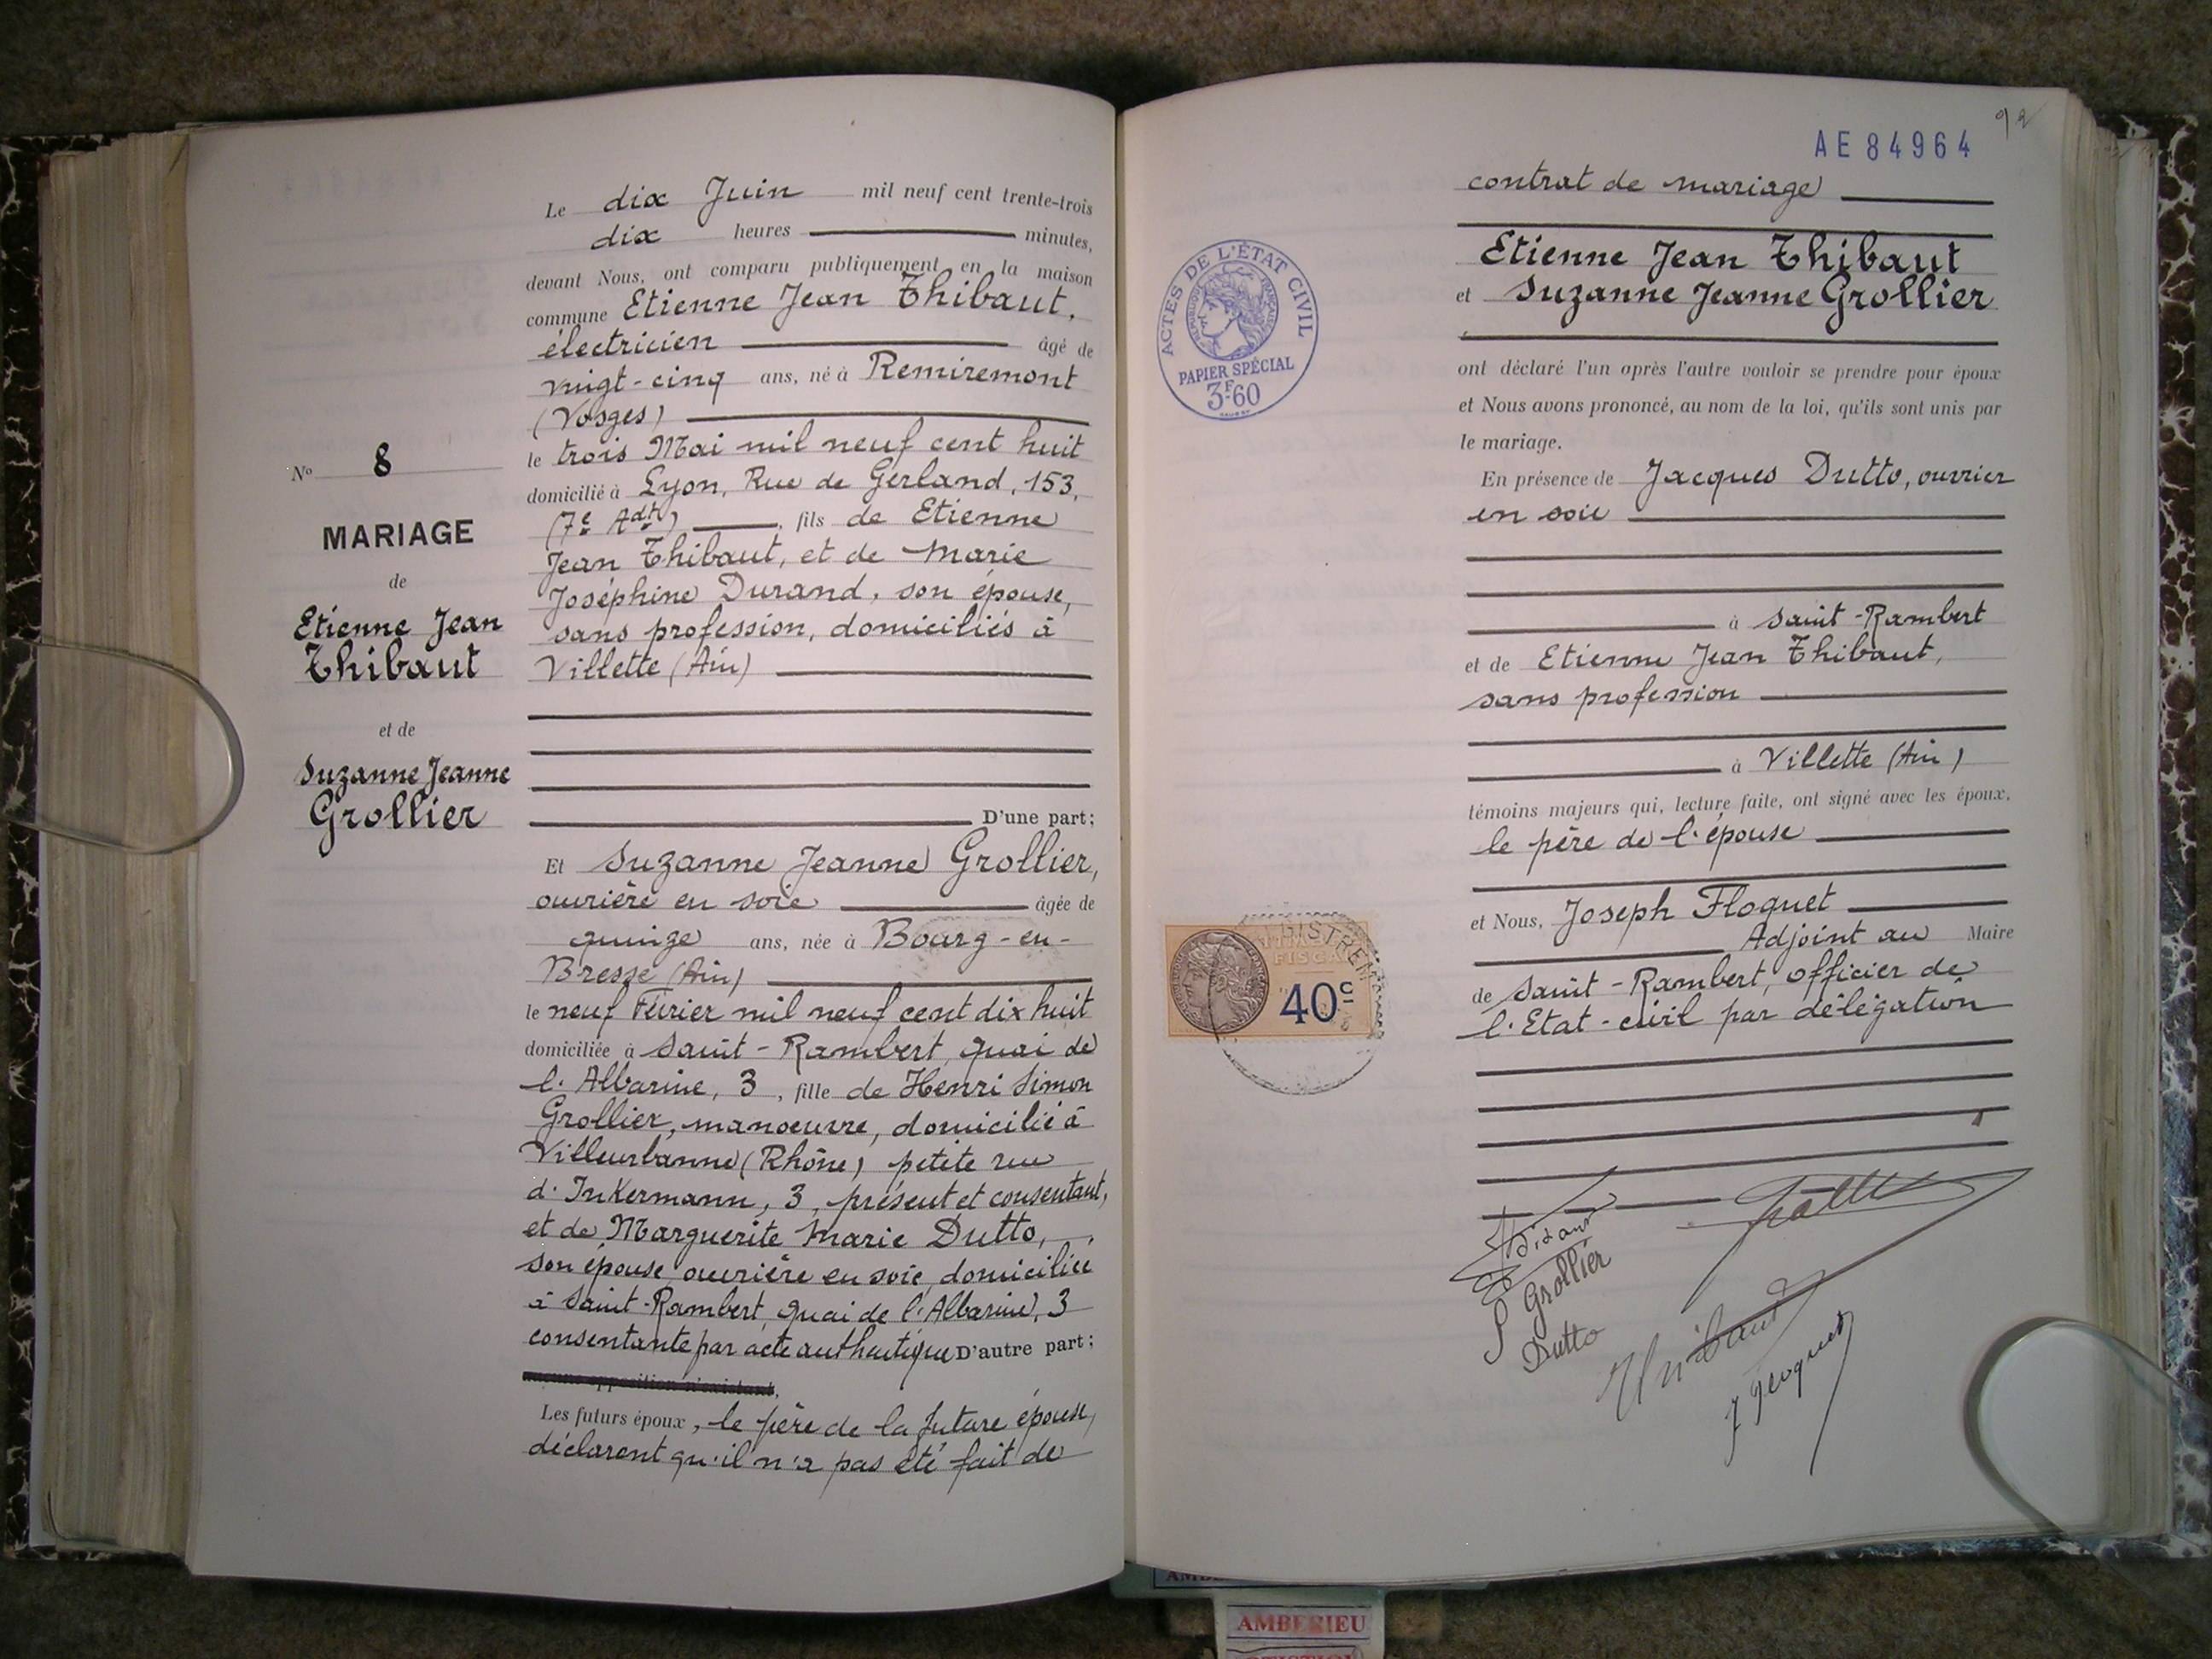 Le dix Juin mil neuf cent trente-trois
dix heures minutes,
devant Nous, ont comparu publiquement en la maison
commune Etienne Jean Thibaut,
électricien âgé de
vingt-cinq ans, né à Remiremont
(Vosges)
le trois Mai mil neuf cent huit
domicilié à Lyon, Rue de Gerland, 153,
(7e Adt), fils de Etienne
Jean Thibaut, et de Marie
Joséphine Durand, son épouse,
sans profession, domiciliés à
Villette (Ain)
D'une part;
No 8
MARIAGE
de
Etienne Jean
Thibaut
et de
Suzanne Jeanne
Grollier
Et Suzanne Jeanne Grollier,
ouvrière en soie âgée de
quinze ans, née à Bourg-en-
Bresse (Ain)
le neuf Février mil neuf cent dix huit
domiciliée à Saint-Rambert, quai de
l'Albarine, 3, fille de Henri Simon
Grollier, manoeuvre, domicilié à
Villeurbanne (Rhône) petite rue
d'Inkermann, 3, présent et consentant,
et de Marguerite Marie Dutto,
son épouse, ouvrière en soie, domiciliée
à Saint-Rambert, quai de l'Albarine, 3
consentante par acte authentique D'autre part;
aucune opposition n'existant,
Les futurs époux, le père de la future épouse,
déclarent qu'il n'a pas été fait de
92
AE 84964
contrat de mariage
Etienne Jean Thibaut
et Suzanne Jeanne Grollier
ACTES DE L'ÉTAT CIVIL
RÉPUBLIQUE FRANÇAISE
PAPIER SPÉCIAL
3F.60
ont déclaré l'un après l'autre vouloir se prendre pour époux
et Nous avons prononcé, au nom de la loi, qu'ils sont unis par
le mariage.
En présence de Jacques Dutto, ouvrier
en soie
à Saint-Rambert
et de Etienne Jean Thibaut,
sans profession
à Villette (Ain)
témoins majeurs qui, lecture faite, ont signé avec les époux,
le père de l'épouse
et Nous, Joseph Floquet
Adjoint au Maire
de Saint-Rambert, officier de
l'Etat-civil par délégation
FISCAL
40c
S Grollier
Dutto
Thibaut
J Floquet
AMBERIEU